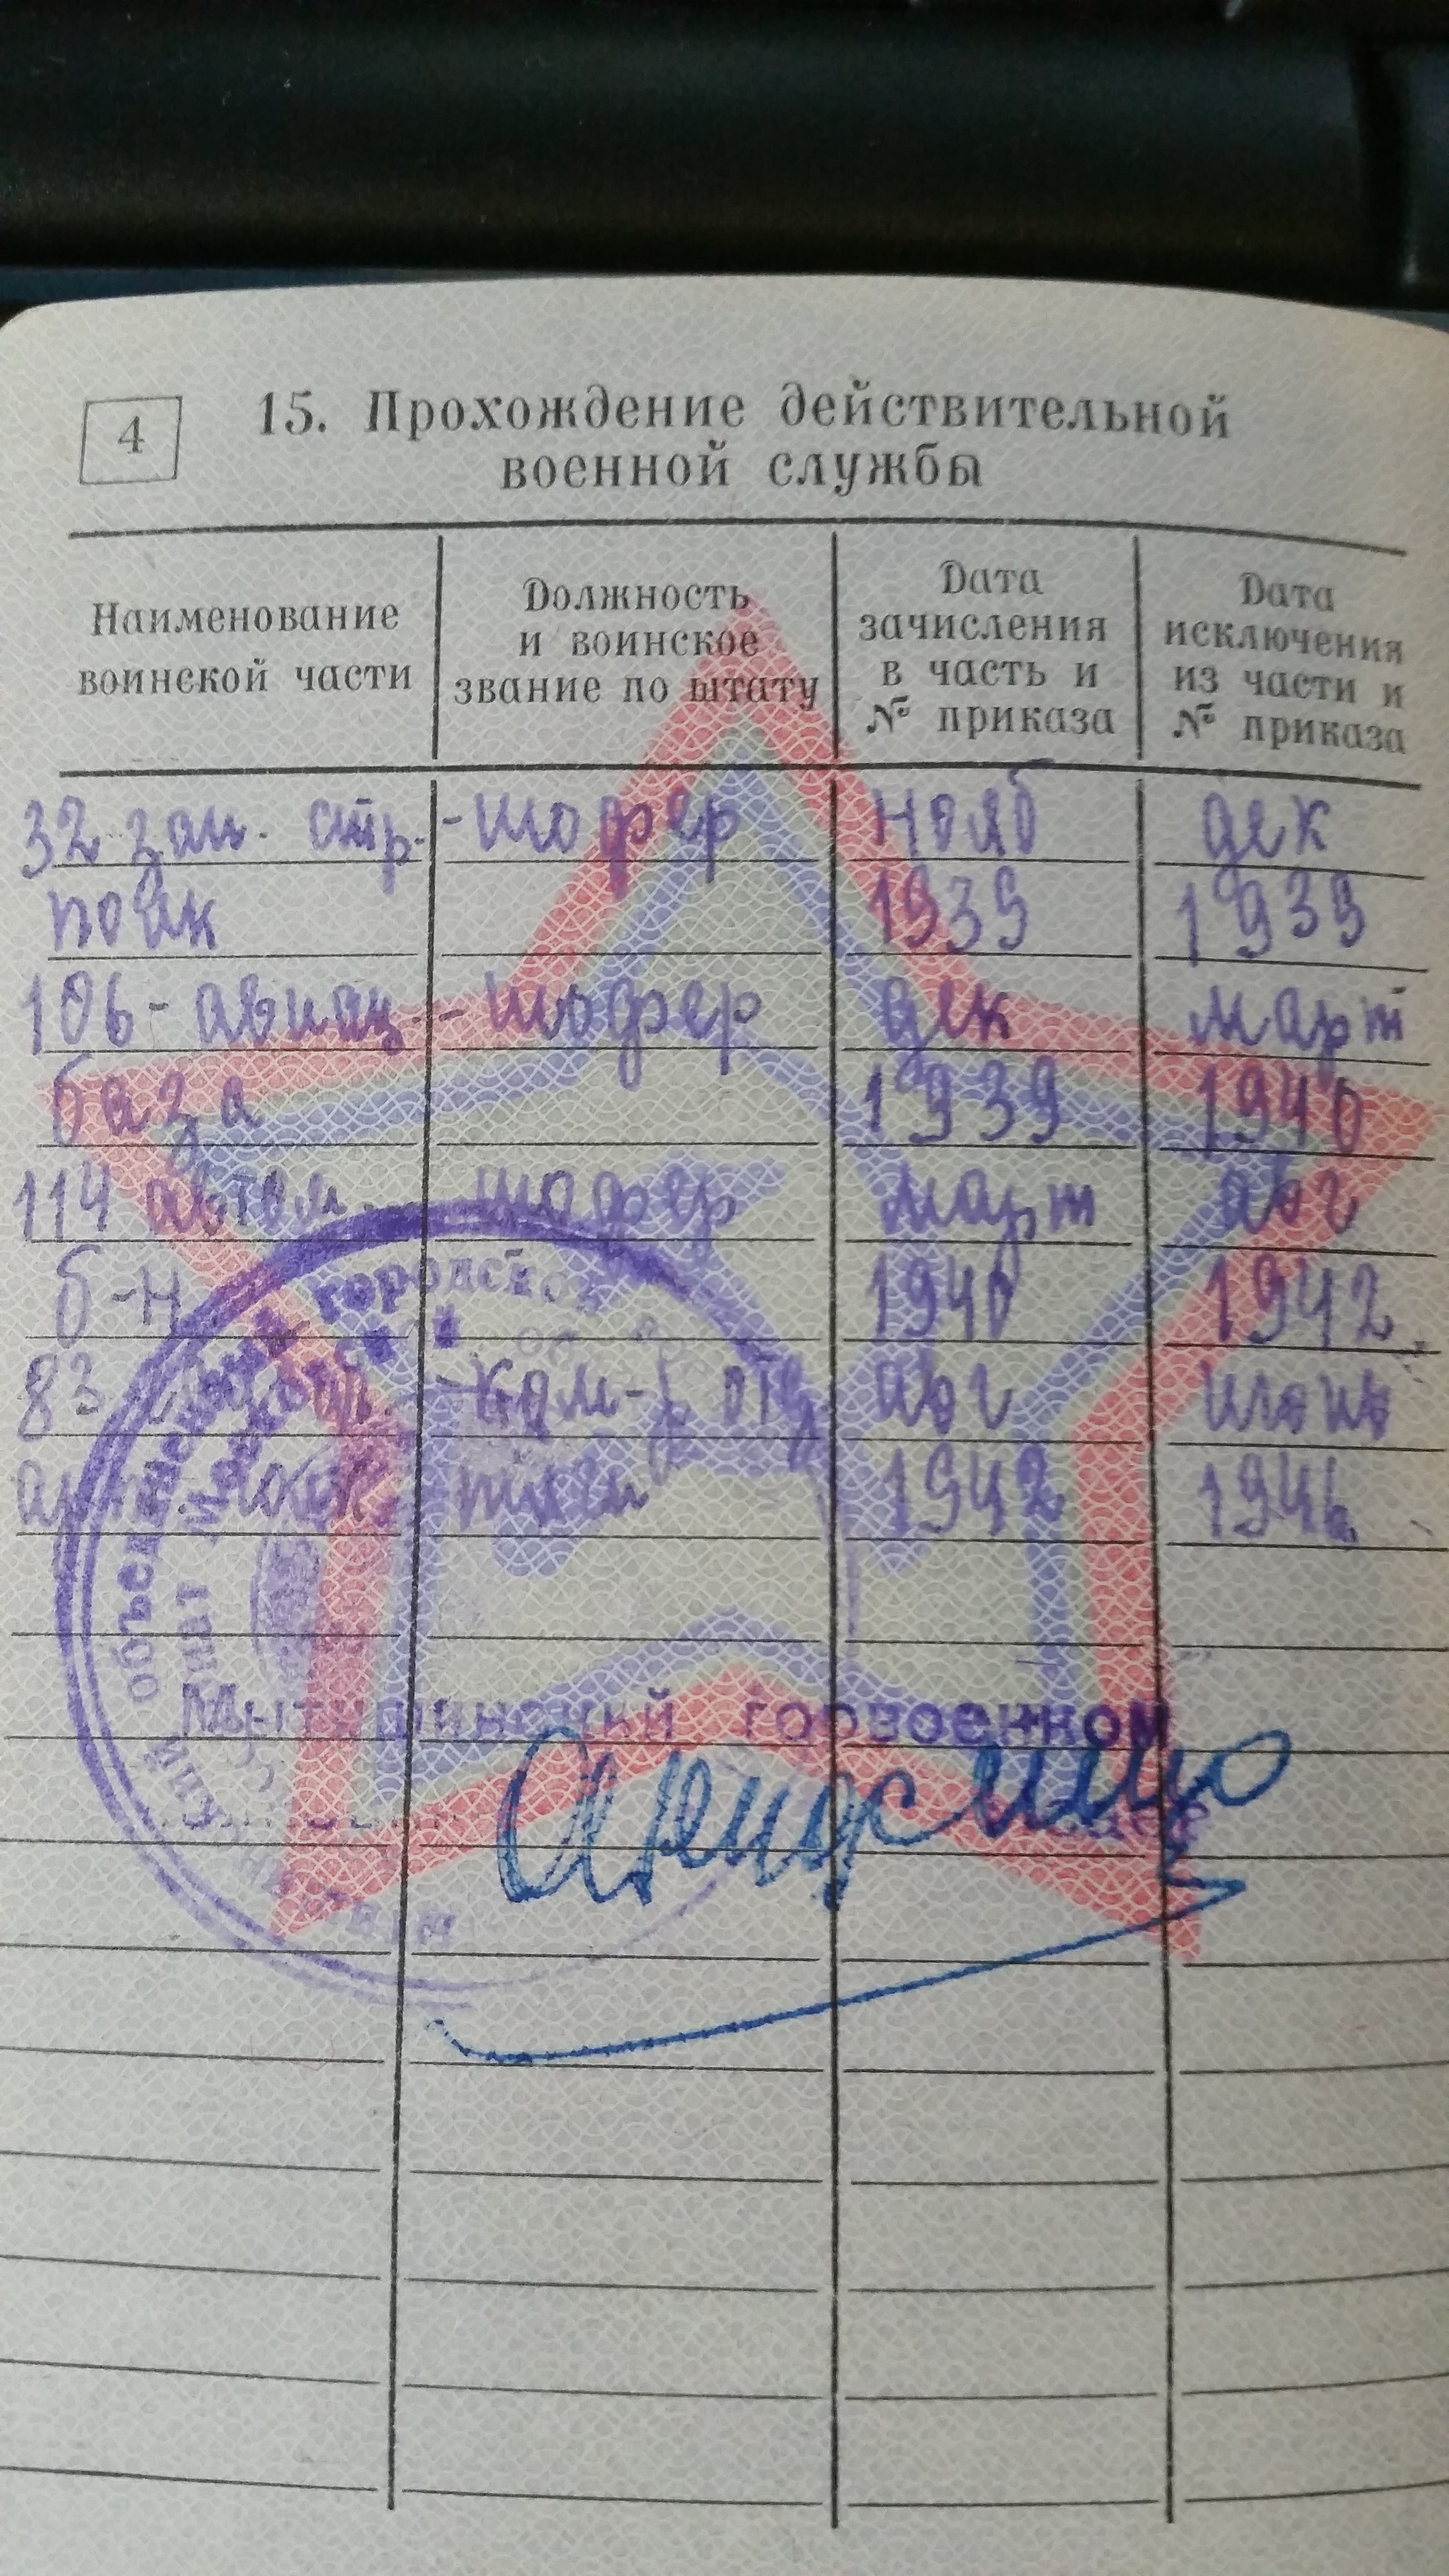 4
15. Прохождение действительной
военной службы
Наименование
воинской части
Должность
и воинское
звание по штату
Дата
зачисления
в часть и
№ приказа
Дата
исключения
из части и
№ приказа
32 зап. стр. - шофер нояб дек
полк 1939 1939
106 - авиац. - шофер дек март
база 1939 1940
114 шофер март авг
б-н 1940 1942
83 ком-р отд авг июнь
полк 1942 1946
Объединенный городской
Мытищинский горвоенком